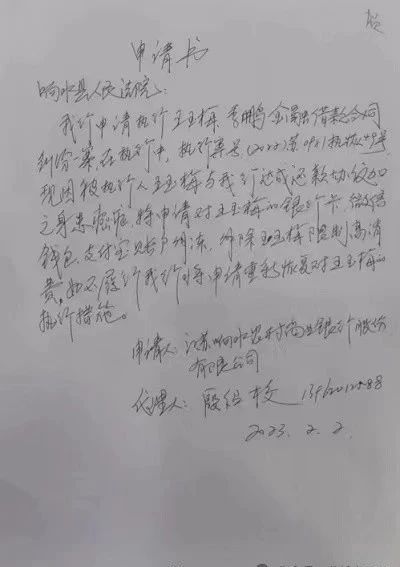 申请书
响水县人民法院:
我行申请执行王玉梅、李鹏金融借款合同
纠纷一案,在执行中,执行案号(2022)苏0921执恢49号
现因被执行人王玉梅与我行达成还款协议,加
之身患癌症,特申请对王玉梅的银行卡、微信
钱包、支付宝账户解冻,解除王玉梅限制高消
费,如不履行我行将申请重新恢复对王玉梅的
执行措施。
申请人:江苏响水农村商业银行股份
有限公司
代理人:殷
2023.2.2.